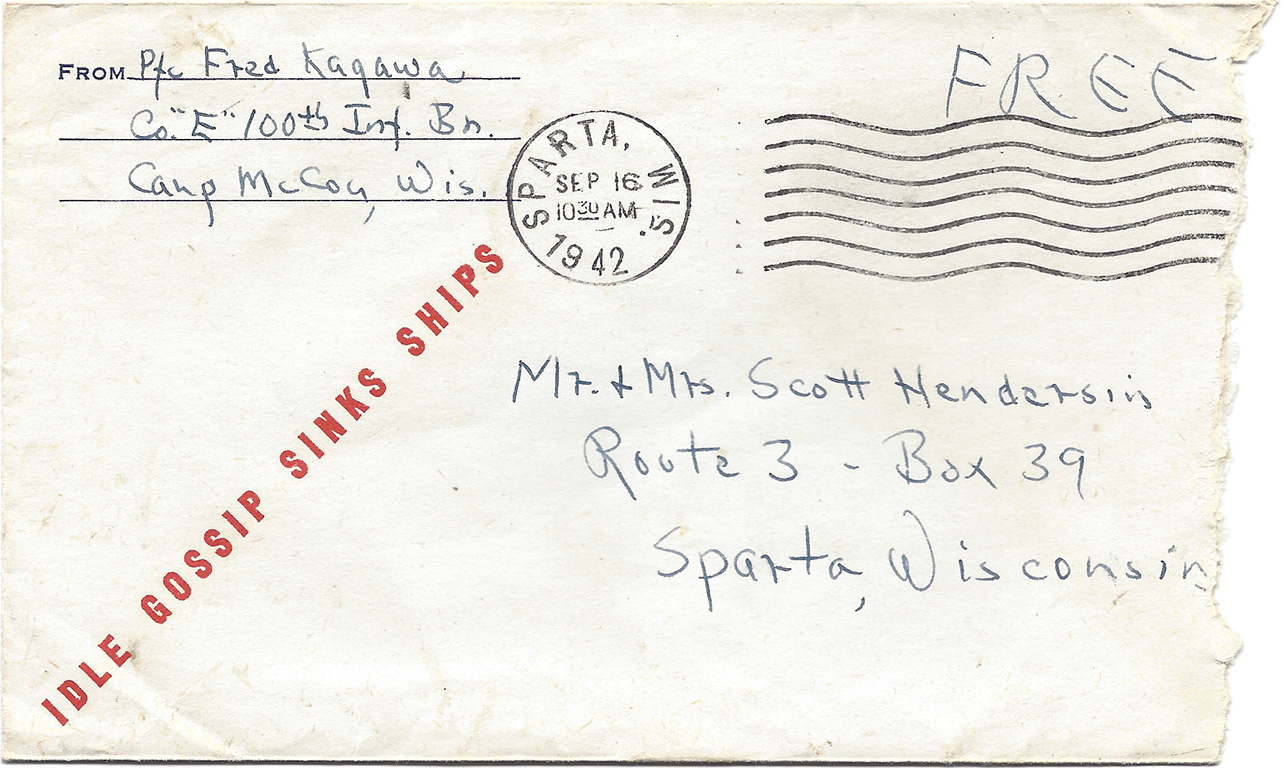 FROM Pfc Fred Kagawa
Co. "E" 100th Inf. Bn.
Camp McCoy, Wis.
FREE
SPARTA, WIS.
SEP 16
10 30 AM
1942
IDLE GOSSIP SINKS SHIPS
Mr. & Mrs. Scott Hendersin
Route 3 - Box 39
Sparta, Wisconsin